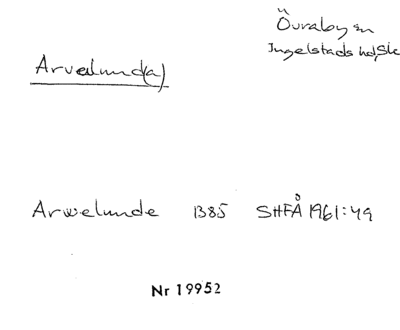 Övraby sn
Ingelstads hd, Sk
Arvalund(a)
Arwelunde 1385 SHFÅ 1961:49
Nr 19952